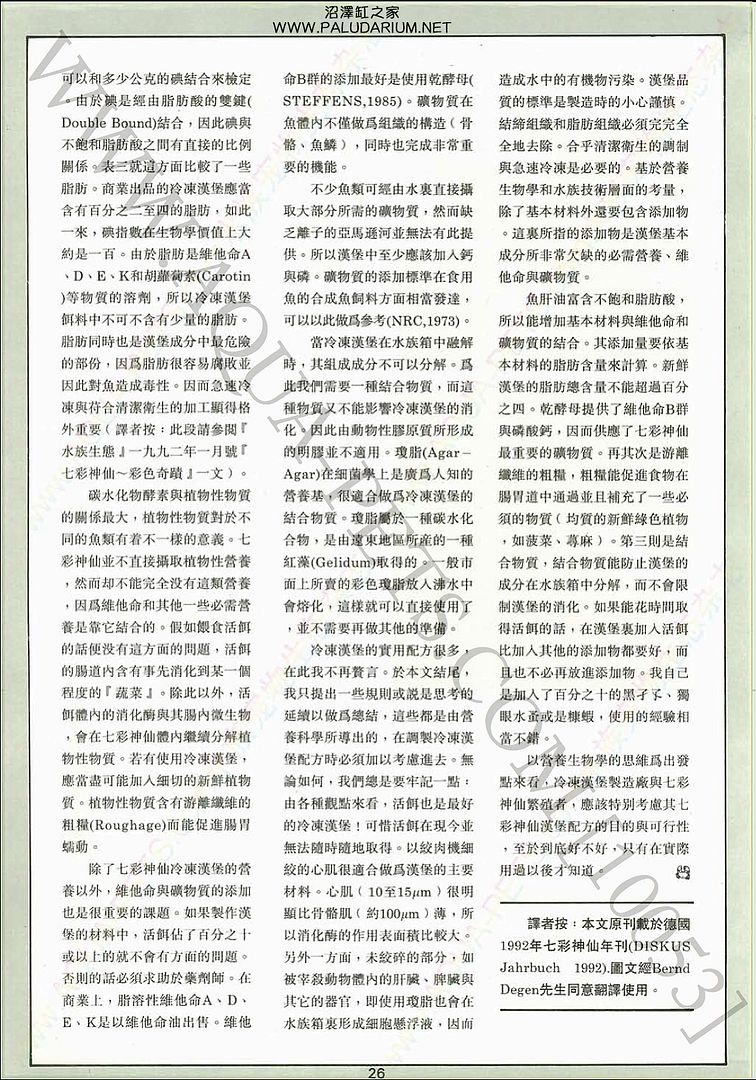 沼澤缸之家
WWW.PALUDARIUM.NET
可以和多少公克的碘結合來檢定
。由於碘是經由脂肪酸的雙鍵(
Double Bound)結合，因此碘與
不飽和脂肪酸之間有直接的比例
關係。表三就這方面比較了一些
脂肪。商業出品的冷凍漢堡應當
含有百分之二至四的脂肪，如此
一來，碘指數在生物學價值上大
約是一百。由於脂肪是維他命A
、D、E、K和胡蘿蔔素(Carotin
)等物質的溶劑，所以冷凍漢堡
餌料中不可不含有少量的脂肪。
脂肪同時也是漢堡成分中最危險
的部份，因爲脂肪很容易腐敗並
因此對魚造成毒性。因而急速冷
凍與符合清潔衛生的加工顯得格
外重要（譯者按：此段請參閱『
水族生態』一九九二年一月號『
七彩神仙～彩色奇蹟』一文）。
碳水化物酵素與植物性物質
的關係最大，植物性物質對於不
同的魚類有着不一樣的意義。七
彩神仙並不直接攝取植物性營養
，然而却不能完全没有這類營養
，因爲維他命和其他一些必需營
養是靠它結合的。假如餵食活餌
的話便没有這方面的問題，活餌
的腸道内含有事先消化到某一個
程度的『蔬菜』。除此以外，活
餌體内的消化酶與其腸内微生物
，會在七彩神仙體内繼續分解植
物性物質。若有使用冷凍漢堡，
應當盡可能加入細切的新鮮植物
質。植物性物質含有游離纖維的
粗糧(Roughage)而能促進腸胃
蠕動。
除了七彩神仙冷凍漢堡的營
養以外，維他命與礦物質的添加
也是很重要的課題。如果製作漢
堡的材料中，活餌佔了百分之十
或以上的就不會有方面的問題。
否則的話必須求助於藥劑師。在
商業上，脂溶性維他命A、D、
E、K是以維他命油出售。維他
命B群的添加最好是使用乾酵母(
STEFFENS,1985)。礦物質在
魚體内不僅做爲組織的構造（骨
骼、魚鱗），同時也完成非常重
要的機能。
不少魚類可經由水裏直接攝
取大部分所需的礦物質，然而缺
乏離子的亞馬遜河並無法有此提
供。所以漢堡中至少應該加入鈣
與磷。礦物質的添加標準在食用
魚的合成魚飼料方面相當發達，
可以以此做爲參考(NRC,1973)。
當冷凍漢堡在水族箱中融解
時，其組成成分不可以分解。爲
此我們需要一種結合物質，而這
種物質又不能影響冷凍漢堡的消
化。因此由動物性膠原質所形成
的明膠並不適用。瓊脂(Agar－
Agar)在細菌學上是廣爲人知的
營養基，很適合做爲冷凍漢堡的
結合物質。瓊脂屬於一種碳水化
合物，是由遠東地區所産的一種
紅藻(Gelidum)取得的。一般市
面上所賣的彩色瓊脂放人沸水中
會熔化，這樣就可以直接使用了
，並不需要再做其他的準備。
冷凍漢堡的實用配方很多，
在此我不再贅言。於本文結尾，
我只提出一些規則或説是思考的
延續以做爲總結，這些都是由營
養科學所導出的，在調製冷凍漢
堡配方時必須加以考慮進去。無
論如何，我們總是要牢記一點：
由各種觀點來看，活餌也是最好
的冷凍漢堡！可惜活餌在現今並
無法隨時隨地取得。以絞肉機細
絞的心肌很適合做爲漢堡的主要
材料。心肌（10至15μm）很明
顯比骨骼肌（約100μm）薄，所
以消化酶的作用表面積比較大。
另外一方面，未絞碎的部分，如
被宰殺動物體内的肝臟、脾臟與
其它的器官，即使用瓊脂也會在
水族箱裏形成細胞懸浮液，因而
造成水中的有機物污染。漢堡品
質的標準是製造時的小心謹慎。
結締組織和脂肪組織必須完完全
全地去除。合乎清潔衛生的調制
與急速冷凍是必要的。基於營養
生物學和水族技術層面的考量，
除了基本材料外還要包含添加物
。這裏所指的添加物是漢堡基本
成分所非常欠缺的必需營養、維
他命與礦物質。
魚肝油富含不飽和脂肪酸，
所以能增加基本材料與維他命和
礦物質的結合。其添加量要依基
本材料的脂肪含量來計算。新鮮
漢堡的脂肪總含量不能超過百分
之四。乾酵母提供了維他命B群
與磷酸鈣，因而供應了七彩神仙
最重要的礦物質。再其次是游離
纖維的粗糧，粗糧能促進食物在
腸胃道中通過並且補充了一些必
須的物質（均質的新鮮綠色植物
，如菠菜、蕁麻）。第三則是結
合物質，結合物質能防止漢堡的
成分在水族箱中分解，而不會限
制漢堡的消化。如果能花時間取
得活餌的話，在漢堡裏加入活餌
比加入其他的添加物都要好，而
且也不必再放進添加物。我自己
是加入了百分之十的黑孑孓、獨
眼水蚤或是糠蝦，使用的經驗相
當不錯。
以營養生物學的思維爲出發
點來看，冷凍漢堡製造廠與七彩
神仙繁殖者，應該特別考慮其七
彩神仙漢堡配方的目的與可行性
，至於到底好不好，只有在實際
用過以後才知道。
譯者按：本文原刊載於德國
1992年七彩神仙年刊(DISKUS
Jahrbuch 1992).圖文經Bernd
Degen先生同意翻譯使用。
26
WWW.AQUA-PETS.COM[1100053]